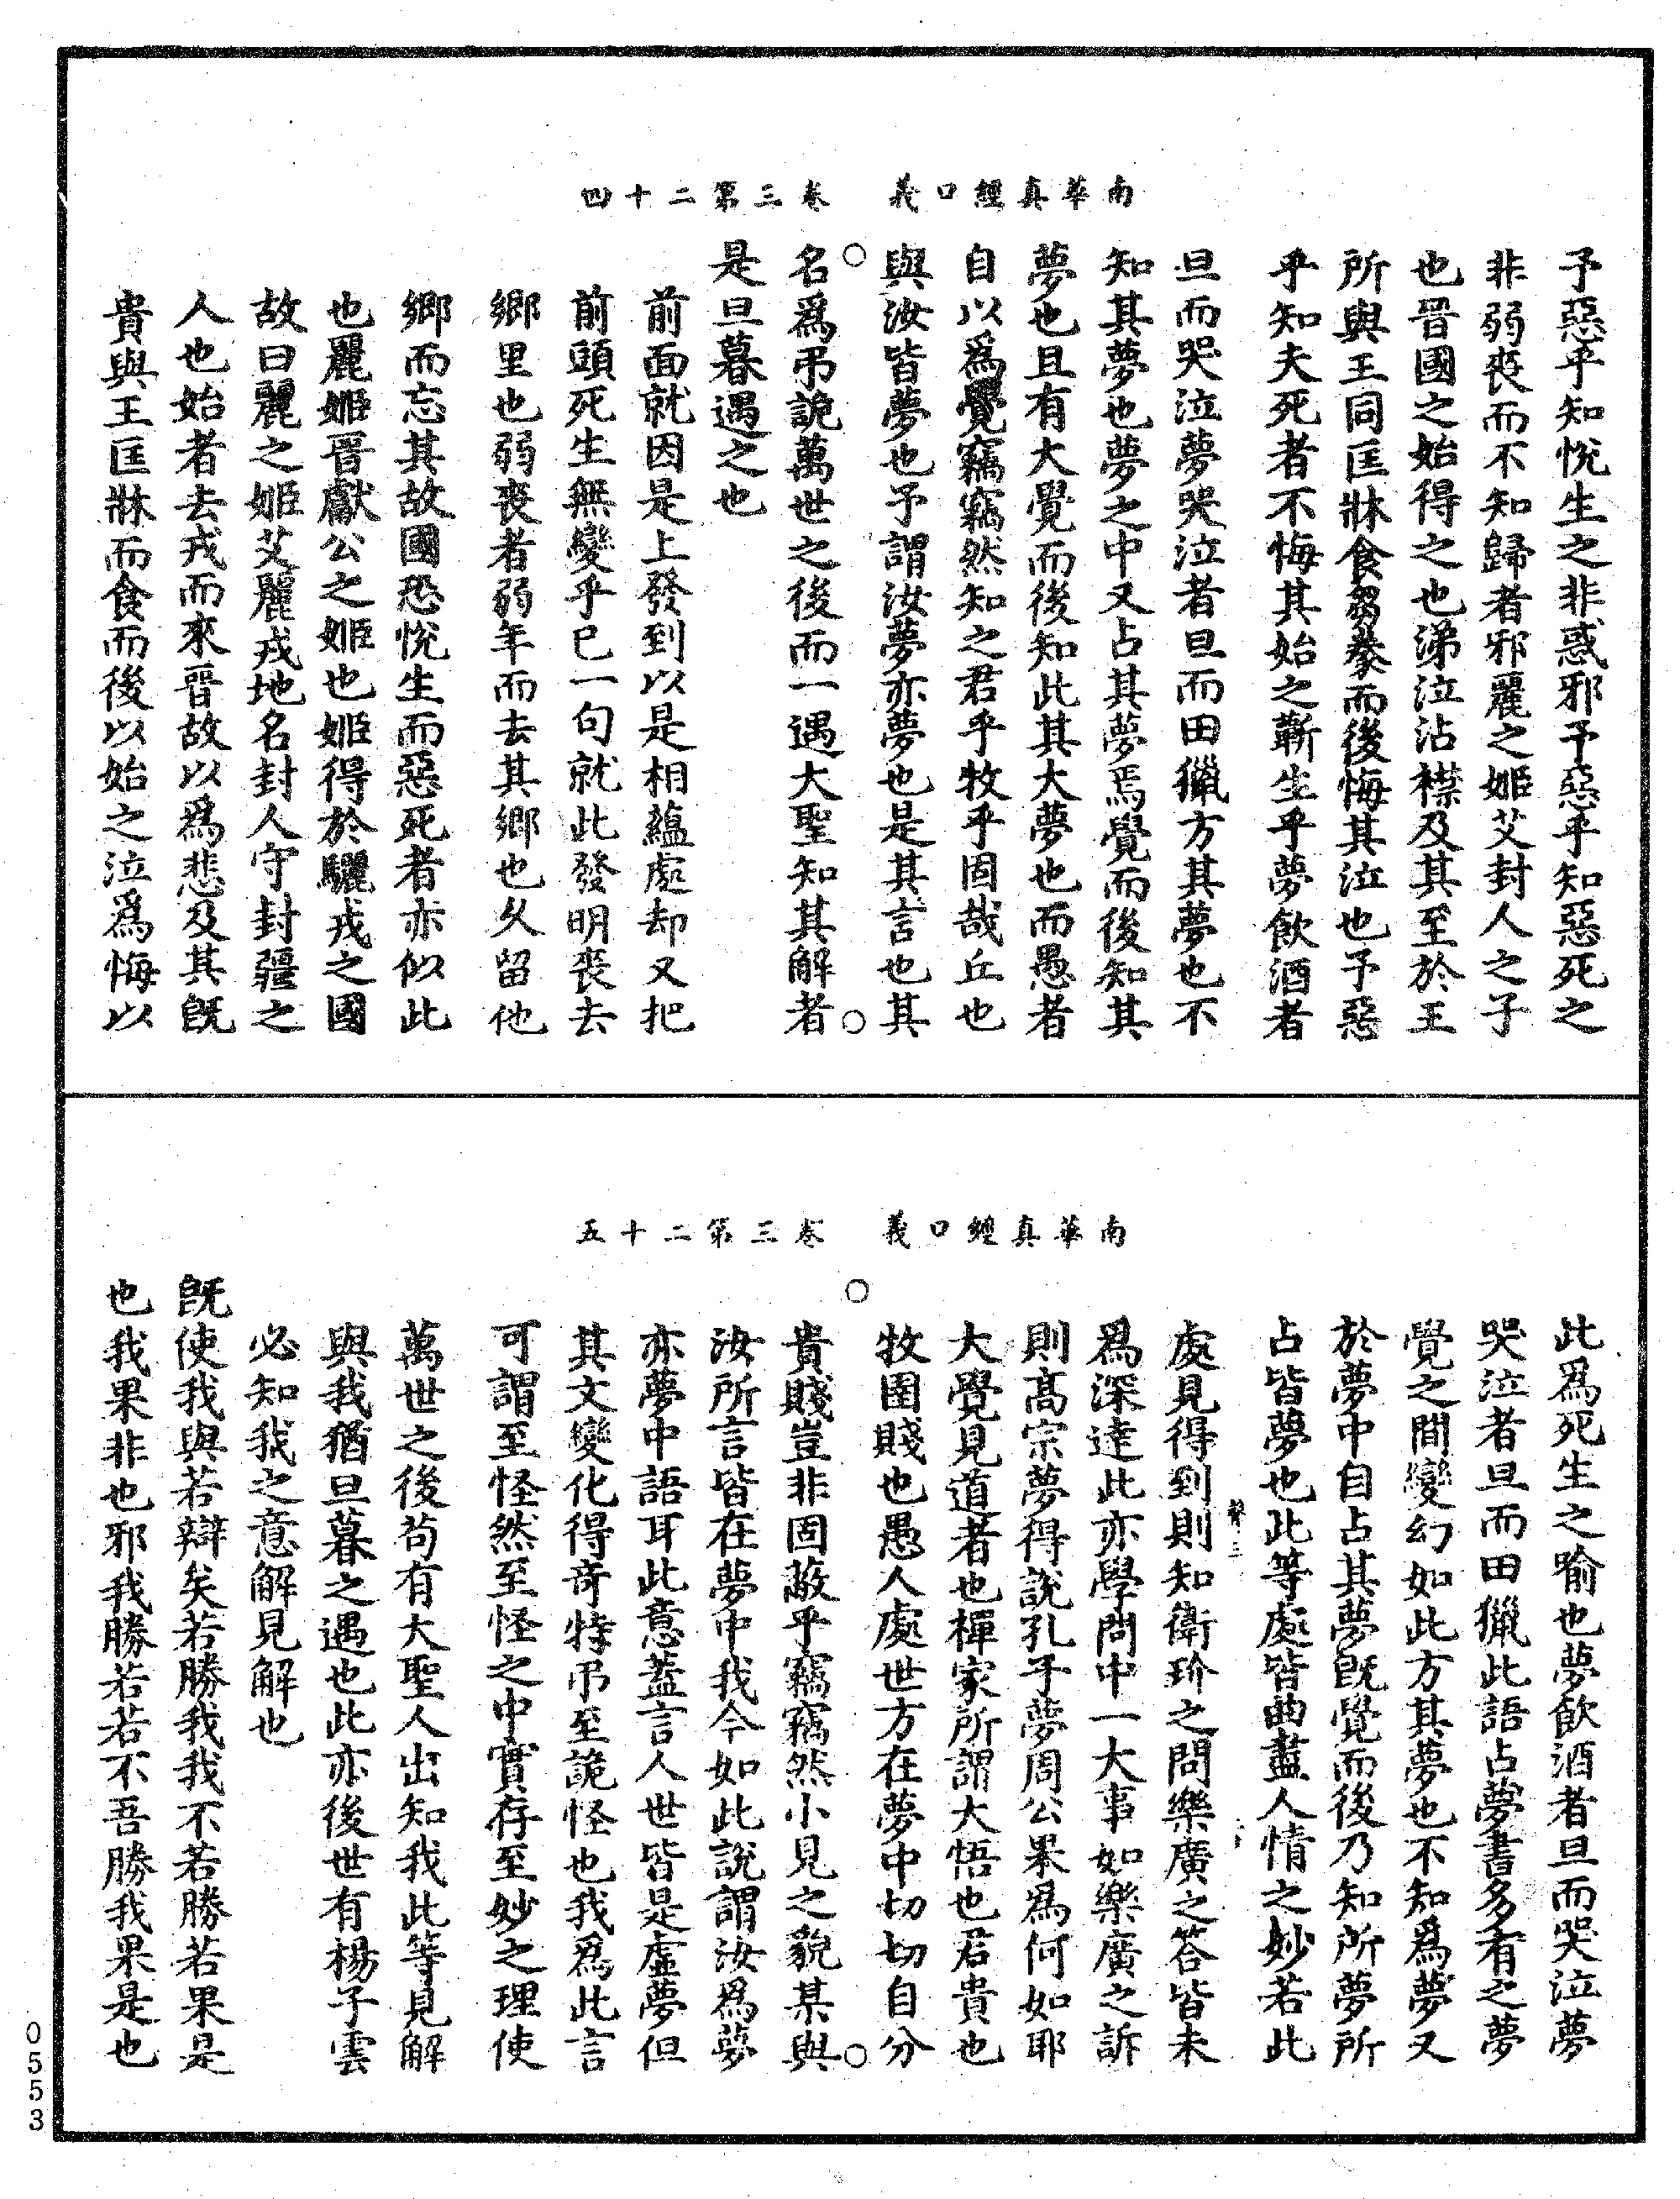 南華真經口義　卷三第二十四
予惡乎知恱生之非惑邪予惡乎知惡死之
非弱喪而不知歸者邪麗之姬艾封人之子
也晉國之始得之也涕泣沾襟及其至於王
所與王同匡牀食芻豢而後悔其泣也予惡
乎知夫死者不悔其始之蘄生乎夢飲酒者
旦而哭泣夢哭泣者旦而田獵方其夢也不
知其夢也夢之中又占其夢焉覺而後知其
夢也且有大覺而後知此其大夢也而愚者
自以爲覺竊竊然知之君乎牧乎固哉丘也
與汝皆夢也予謂汝夢亦夢也是其言也其
名爲弔詭萬世之後而一遇大聖知其解者
是旦暮遇之也
前面就因是上發到以是相蘊處却又把
前頭死生無變乎已一句就此發明喪去
鄉里也弱喪者弱年而去其鄉也久留他
鄉而忘其故國恐恱生而惡死者亦似此
也麗姬晉獻公之姬也姬得於驪戎之國
故曰麗之姬艾麗戎地名封人守封疆之
人也始者去戎而來晉故以爲悲及其旣
貴與王匡牀而食而後以始之泣爲悔以
南華真經口義　卷三第二十五
此爲死生之喻也夢飲酒者旦而哭泣夢
哭泣者旦而田獵此語占夢書多有之夢
覺之間變幻如此方其夢也不知爲夢又
於夢中自占其夢旣覺而後乃知所夢所
占皆夢也此等處皆曲盡人情之妙若此
處見得到則知衛玠之問樂廣之答皆未
爲深達此亦學問中一大事如樂廣之訴
則髙宗夢得說孔子夢周公果爲何如耶
大覺見道者也禪家所謂大悟也君貴也
牧圉賤也愚人處世方在夢中切切自分
貴賤豈非固蔽乎竊竊然小見之貌某與
汝所言皆在夢中我今如此說謂汝爲夢
亦夢中語耳此意蓋言人世皆是虛夢但
其文變化得竒特弔至詭怪也我爲此言
可謂至怪然至怪之中實存至妙之理使
萬世之後苟有大聖人出知我此等見解
與我猶旦暮之遇也此亦後世有楊子雲
必知我之意解見解也
旣使我與若辯矣若勝我我不若勝若果是
也我果非也邪我勝若若不吾勝我果是也
0553